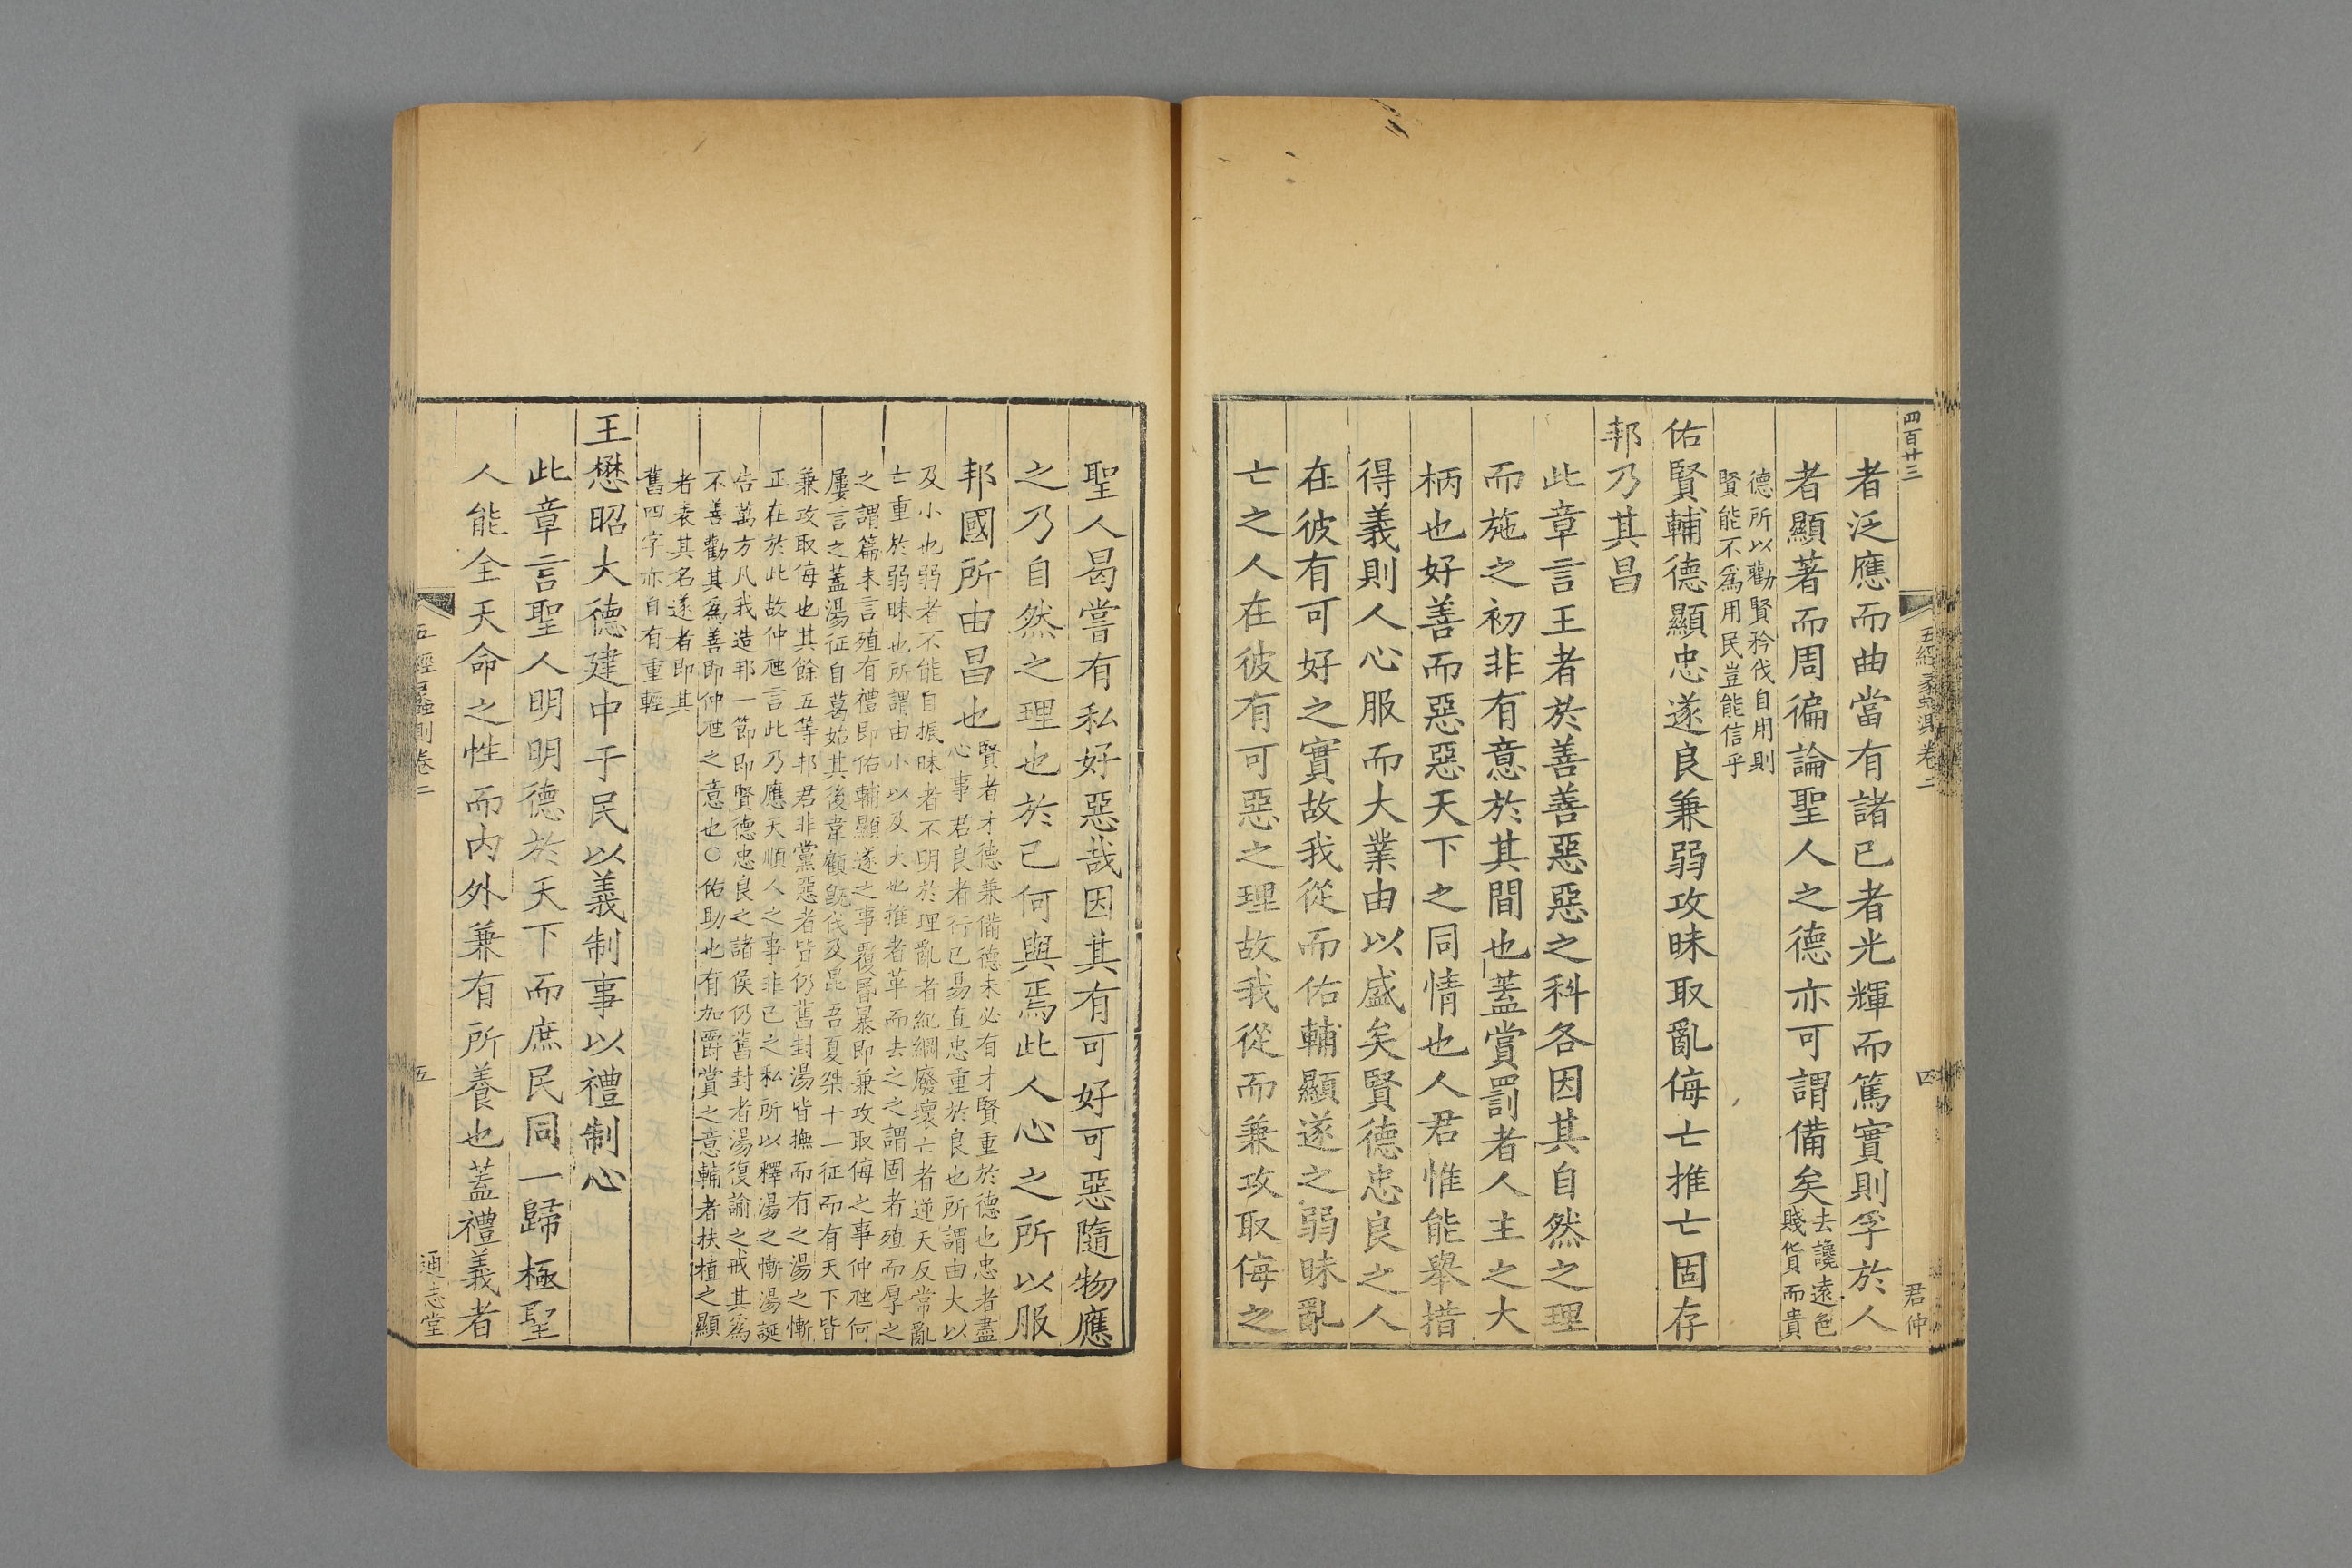 四百廿三
君仲
者泛應而曲當有諸已者光輝而篤實則孚於人
者顯著而周徧論聖人之德亦可謂備矣去讒遠色
賤貨而貴
德所以勸賢矜伐自用則
賢能不爲用民豈能信乎
佑賢輔德顯忠遂良兼弱攻昧取亂侮亡推亡固存
邦乃其昌
此章言王者於善善惡惡之科各因其自然之理
而施之初非有意於其間也蓋賞罰者人主之大
柄也好善而惡惡天下之同情也人君惟能舉措
得義則人心服而大業由以盛矣賢德忠良之人
在彼有可好之實故我從而佑輔顯遂之弱昧亂
亡之人在彼有可惡之理故我從而兼攻取侮之
聖人曷嘗有私好惡哉因其有可好可惡隨物應
之乃自然之理也於已何與焉此人心之所以服
邦國所由昌也賢者才德兼備德未必有才賢重於德也忠者盡
心事君良者行已易直忠重於良也所謂由大以
及小也弱者不能自振昧者不明於理亂者紀綱廢壞亡者逆天反常亂
亡重於弱昧也所謂由小以及大也推者革而去之之謂固者殖而厚之
之謂篇末言殖有禮即佑輔顯遂之事覆昬暴即兼攻取侮之事仲虺何
屢言之蓋湯征自葛始其後韋顧旣伐及昆吾夏桀十一征而有天下皆
兼攻取侮也其餘五等邦君非黨惡者皆仍舊封湯皆撫而有之湯之慚
正在於此故仲虺言此乃應天順人之事非已之私所以釋湯之慚湯誕
告萬方凡我造邦一節即賢德忠良之諸侯仍舊封者湯復諭之戒其爲
不善勸其爲善即仲虺之意也○佑助也有加爵賞之意輔者扶植之顯
者表其名遂者即其
舊四字亦自有重輕
王懋昭大德建中于民以義制事以禮制心
此章言聖人明明德於天下而庶民同一歸極聖
人能全天命之性而內外兼有所養也蓋禮義者
五經蠡測卷二
五
通志堂